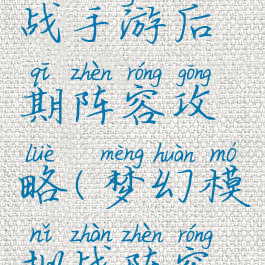 战手游后
qī zhèn róng gōng
期阵容攻
lüè mèng huàn mó
略(梦幻模
nǐ zhàn zhèn róng
拟战阵容